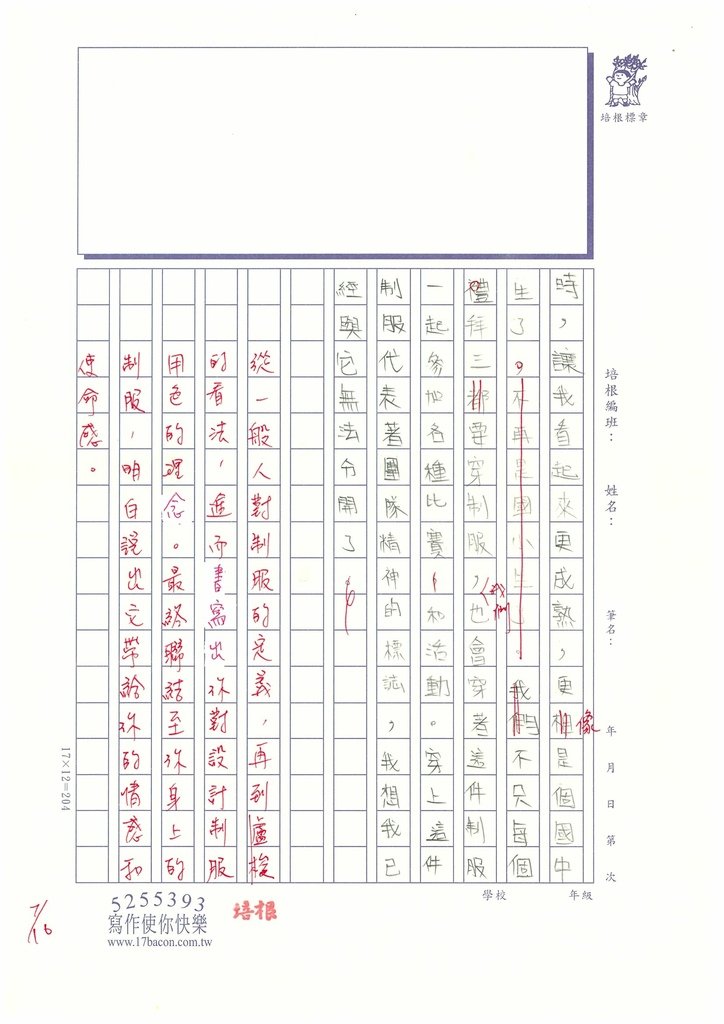 培根標章
培根編班：
姓名：
筆名：
年 月 日 第 次
學校
年級
時，讓我看起來更成熟，更相是個國中
像
生了。不再是國小生了。我們不只每個
禮拜三都要穿制服，也會穿著這件制服
我們
一起參加各種比賽，和活動。穿上這件
制服代表著團隊精神的標誌，我想我已
經與它無法分開了，
從一般人對制服的定義，再到盧梭
的看法，進而書寫出你對設計制服
用色的理念。最終聯結至你身上的
制服，明白說出它帶給你的情感和
使命感。
17×12=204
5255393
寫作使你快樂
www.17bacon.com.tw
培根
7/16